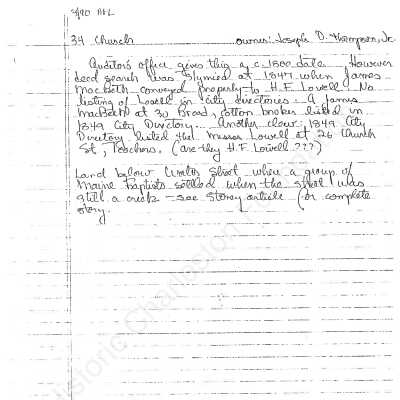 3/90 AFL
34 Church owner: Joseph D. Thompson, Jr.
Auditor's office gives this a c.1800 date. However
deed search was stymied at 1847 when James
MacBeth conveyed property to H.F. Lovell. No
listing of Lovell in city directories. A James
MacBeth at 30 Broad, cotton broker listed in
1849 City Directory... Another clue: 1849 City
Directory listed the Misses Lowell at 26 Church
St, Teachers. (are they H.F. Lovell???)
Land below Street where a group of
Maine Baptists settled when the street was
still a creek - see Storey article for complete
story.
Historic Charleston